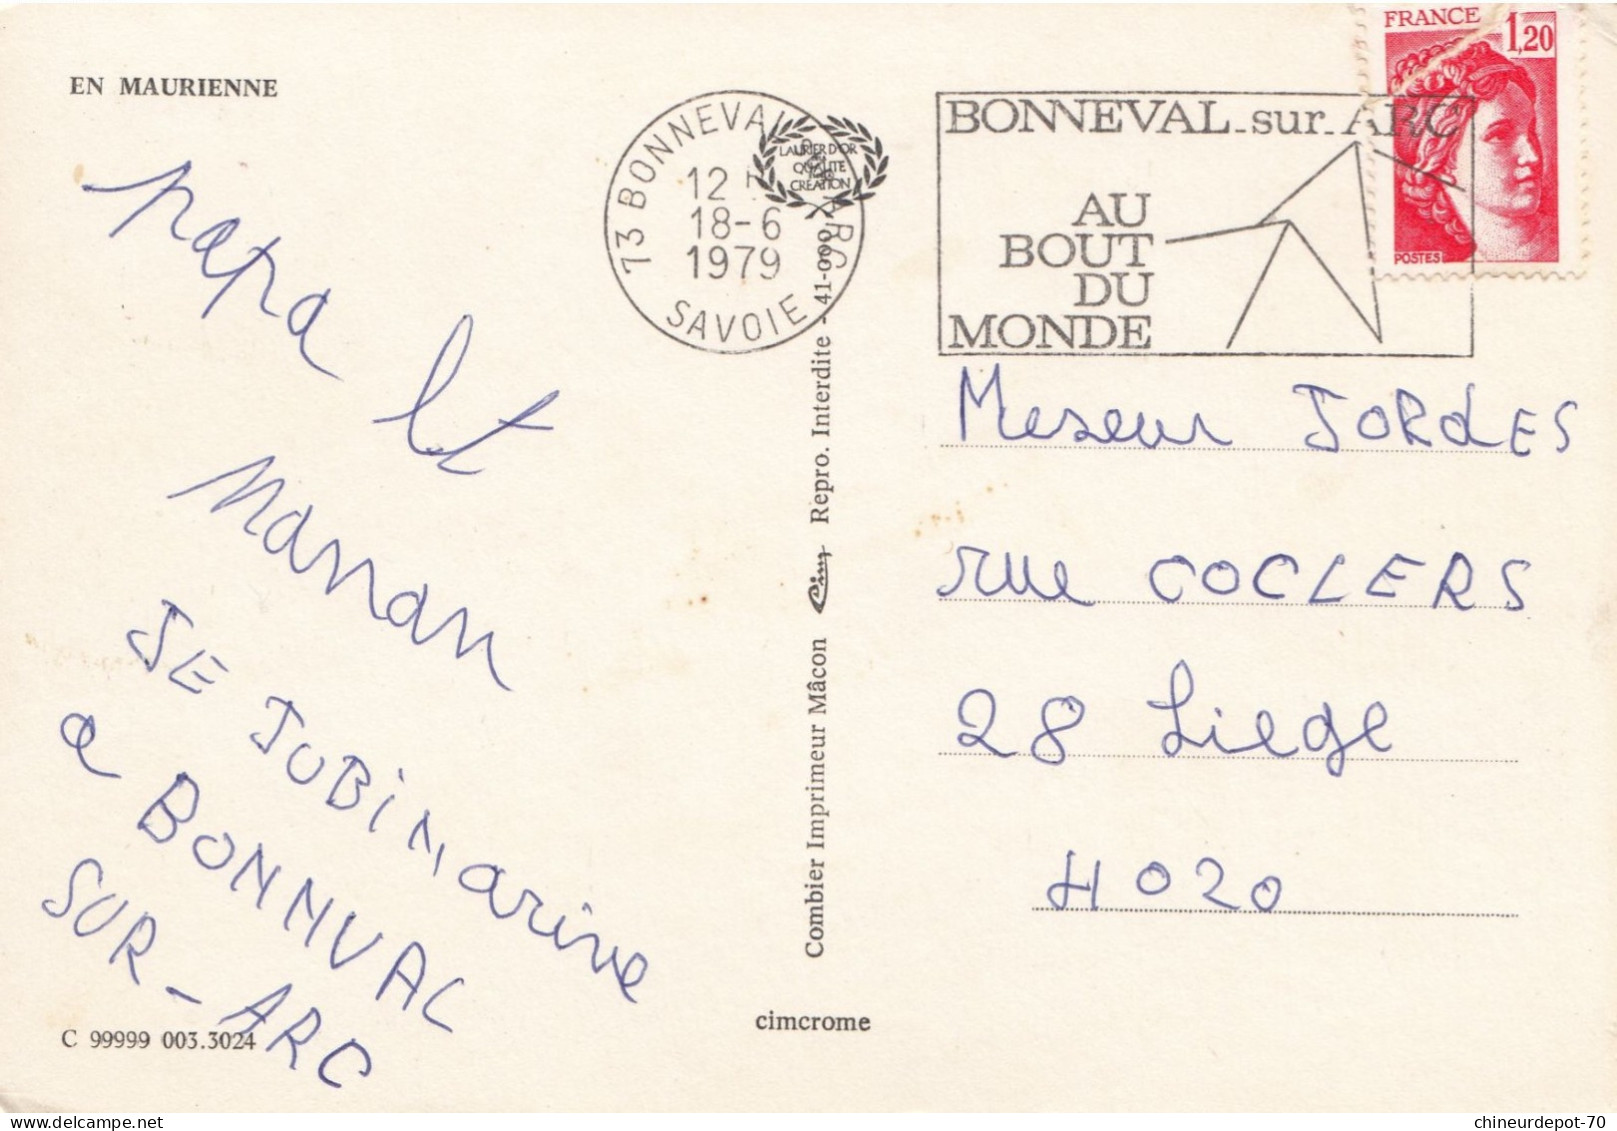 EN MAURIENNE
papa et
maman
JE JUBiNarive
a BONNVAL
SUR-ARC
C 99999 003.3024
73 BONNEVAL ARC
12 H
18-6
1979
SAVOIE
LAURIER D'OR
QUALITE
CREATION
Combier Imprimeur Mâcon Cim Repro. Interdite - 41-000
cimcrome
BONNEVAL-sur-ARC
AU
BOUT
DU
MONDE
FRANCE
1,20
POSTES
Meseur JORdES
rue COCLERS
28 Liege
4020
chineurdepot-70